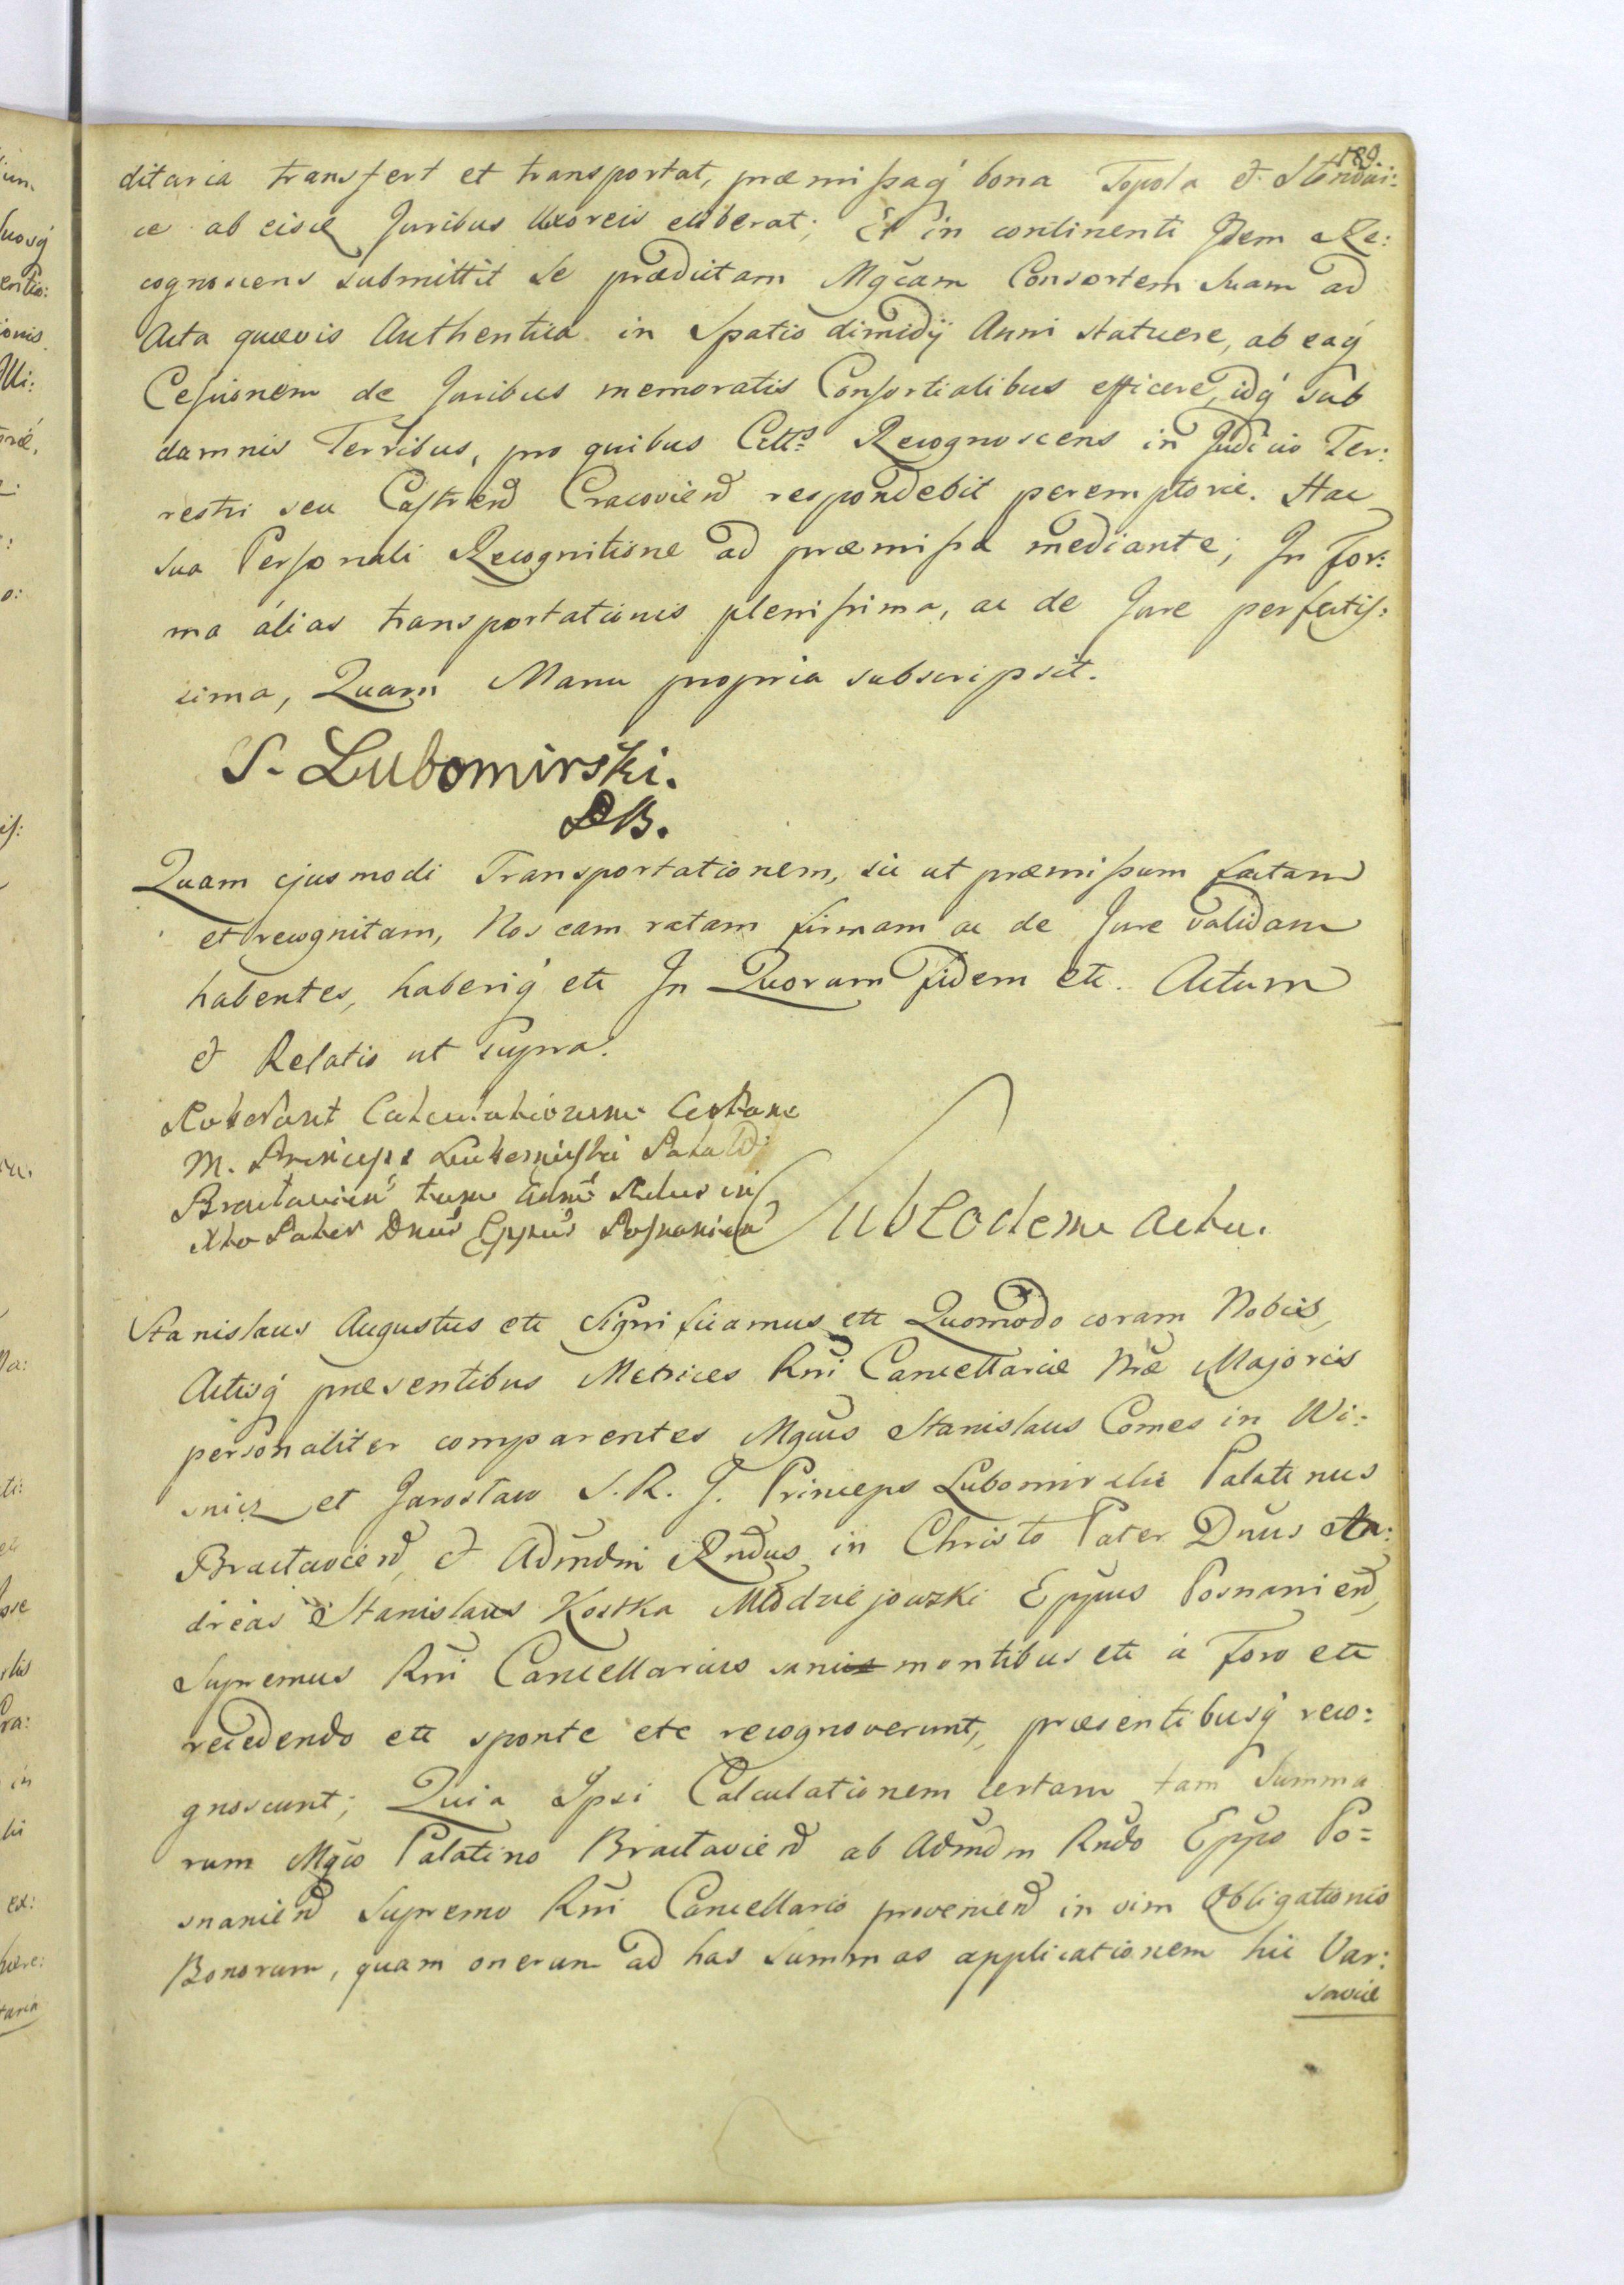 189.
ditaria transfert et transportat, præmißaq́ bona Topola &
ce ab eisd Juribus Uxoreis eliberat; Et in continenti Idem Re:
cognoscens submittit se prædictam Mgcam Consortem Suam ad
Acta quævis Authentica in Spatio dimidÿ Anni statuere, ab eaq́
Ceſsionem de Juribus memoratis Conſortialibus efficere, idq́ sub
damnis Terribus, pro quibus Citts Recognoscens in Judicio Ter:
restri seu Caſtrend Cracoviend respondebit peremptorie. Hac
sua Perſonali Recognitione ad præmißa mediante; In For:
ma alias transportationis plenißima, ac de Jure perfectiſ:
sima, Quam Manu propria subscripsit.
S. Lubomirski.
Quam ejusmodi Transportationem, sic ut præmißum factam
et recognitam, Nos eam ratam firmam ac de Jure validam
habentes, haberiq́ etc In Quorum fidem etc. Actum
& Relatio ut supra.
Roborant Calculationem Certam
M. Princeps Lubomirſki Palat:
Braclavien tum Adm Rdus in
Xto Pater Dnus Eppus Poſnanien
Sub Eodem actu.
Stanislaus Augustus etc Significamus etc Quomodo coram Nobis,
Actisq́ præsentibus Metrices Rni Cancellariæ Nræ Majoris
personaliter comparentes Mgcus Stanislaus Comes in Wi:
snicz et Jarosław S. R. J. Princeps Lubomirski Palatinus
Braclaviend, & Admdm Rndus in Christo Pater Dnus An:
dreas Stanislaus Kostka Młodziejowski Eppus Posnaniend,
Supremus Rni Cancellarius sanis mentibus etc a Foro etc
recedendo etc sponte etc recognoverunt, præsentibusq́ reco:
gnoscunt; Quia Ipsi Calculationem certam tam Summa
rum Mgco Palatino Braclaviend ab Admdm Rndo Eppo Po=
snaniend Supremo Rni Cancellario proveniend in vim Obligationis
Bonorum, quam onerum ad has Summas applicationem hic Var:
saviæ